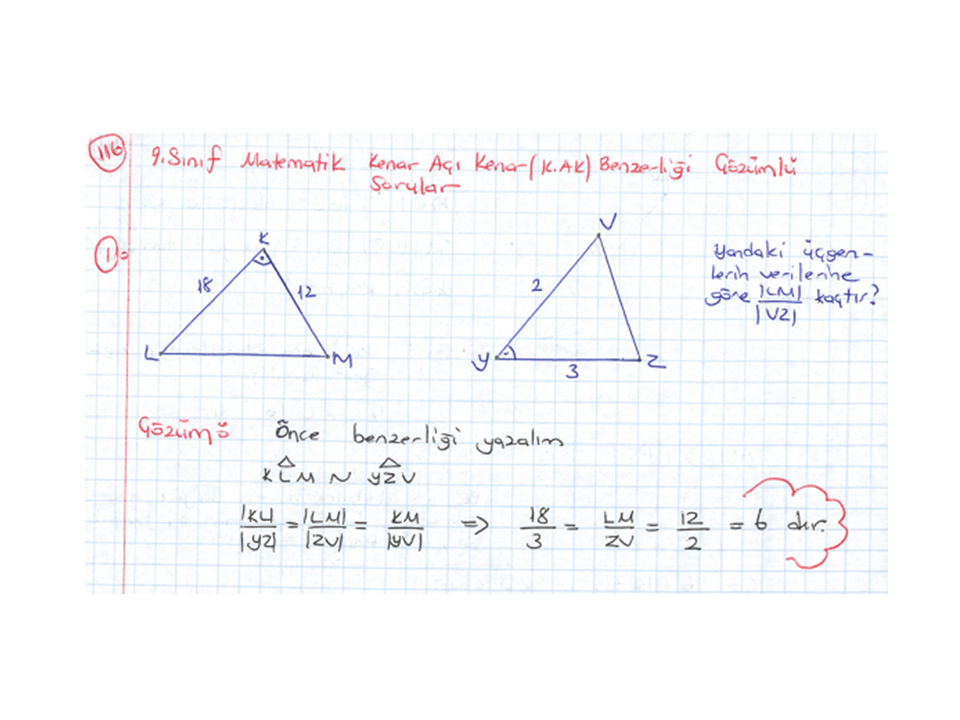 116
9.Sınıf Matematik Kenar Açı Kenar (K.AK) Benzerliği Çözümlü
Sorular
1:
K
18
12
L
M
V
2
Y
3
Z
Yandaki üçgen-
lerin verilerine
göre |LM|/|VZ| kaçtır?
Çözüm: Önce benzerliği yazalım
KLM ~ YZV
|KL|/|YZ| = |LM|/|ZV| = KM/|YV| => 18/3 = LM/ZV = 12/2 = 6 dır.